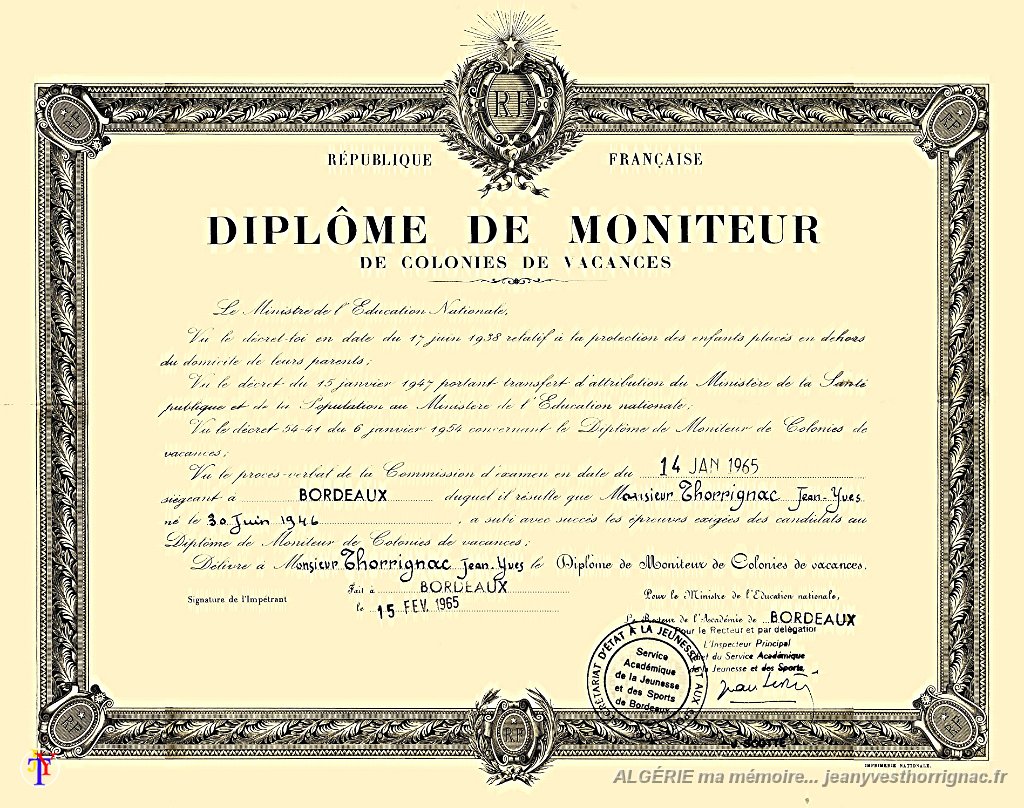 RF
RÉPUBLIQUE FRANÇAISE
DIPLÔME DE MONITEUR
DE COLONIES DE VACANCES
Le Ministre de l'Education Nationale,
Vu le décret-loi en date du 17 juin 1938 relatif à la protection des enfants placés en dehors
du domicile de leurs parents;
Vu le décret du 15 janvier 1947 portant transfert d'attribution du Ministère de la Santé
publique et de la Population au Ministère de l'Education nationale;
Vu le décret 54-41 du 6 janvier 1954 concernant le Diplôme de Moniteur de Colonies de
vacances;
Vu le procès-verbal de la Commission d'examen en date du 14 JAN 1965
siégeant à BORDEAUX duquel il résulte que Monsieur Thorrignac Jean-Yves
né le 30 Juin 1946, a subi avec succès les épreuves exigées des candidats au
Diplôme de Moniteur de Colonies de vacances;
Délivre à Monsieur Thorrignac Jean-Yves le Diplôme de Moniteur de Colonies de vacances.
Fait à BORDEAUX
le 15 FEV. 1965
Signature de l'Impétrant
Pour le Ministre de l'Education nationale,
Le Recteur de l'Académie de BORDEAUX
Pour le Recteur et par délégation
L'Inspecteur Principal
du Service Académique
Jeunesse et des Sports
SECRÉTARIAT D'ÉTAT A LA JEUNESSE ET AUX
Service
Académique
de la Jeunesse
et des Sports
de Bordeaux
RF
IMPRIMERIE NATIONALE.
ALGÉRIE ma mémoire... jeanyvesthorrignac.fr